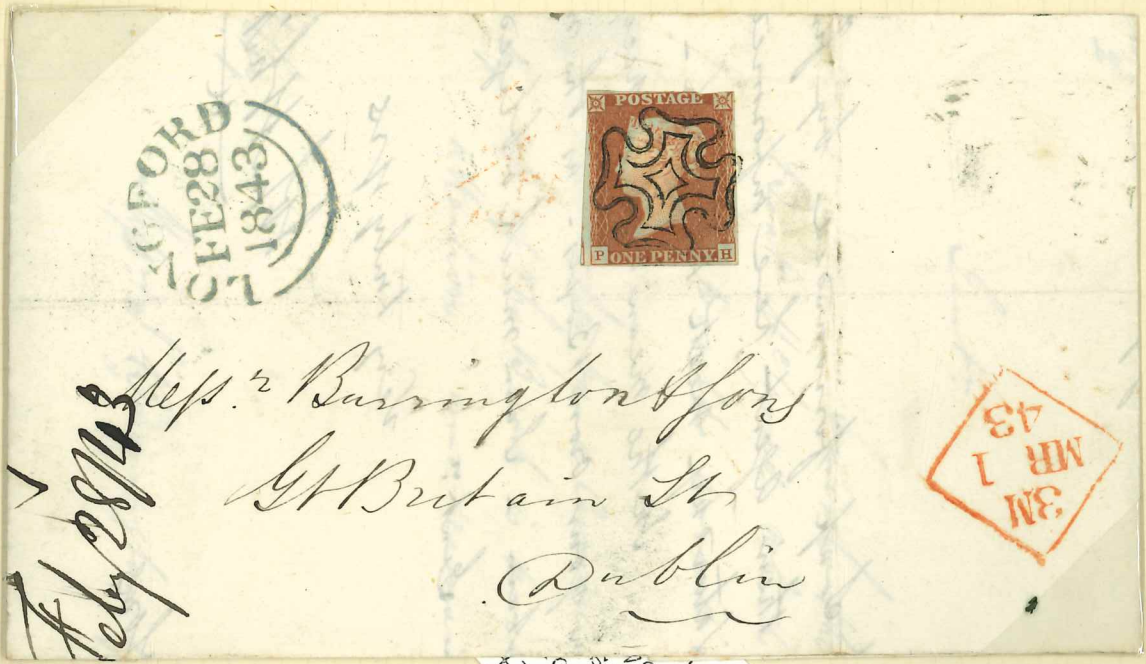 LONGFORD
FE 28
1843
POSTAGE
P ONE PENNY. H
Messrs. Barrington & Sons
Gt Britain St
Dublin
Feby 28/43
3M
MR 1
43